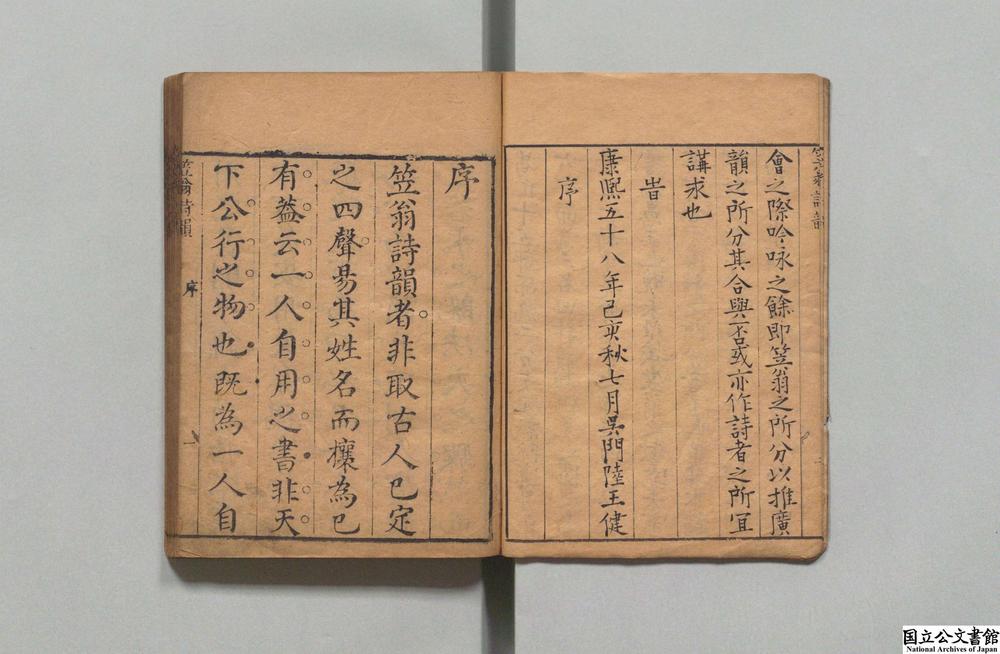 會之際吟咏之餘即笠翁之所分以推廣
韻之所分其合與否或亦作詩者之所宜
講求也
旹
康熙五十八年己亥秋七月吳門陸王健
序
序
笠翁詩韻者非取古人已定
之四聲易其姓名而攘為已
有蓋云一人自用之書非天
下公行之物也既為一人自
笠翁詩韻
序
一
国立公文書館
National Archives of Japan